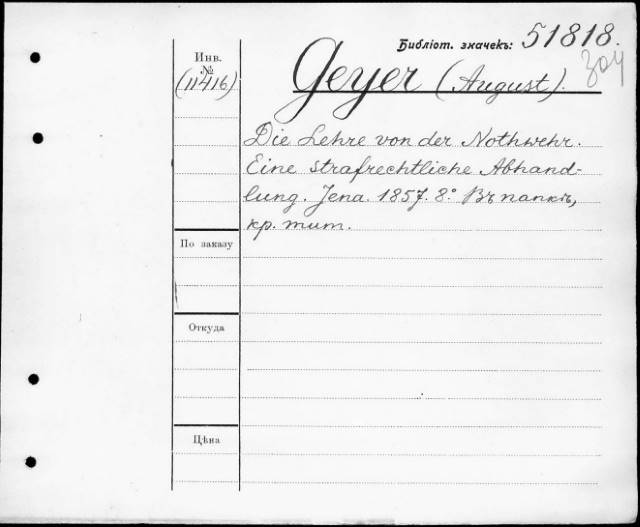 Библіот. значекъ: 51818.
304
Инв.
№
(11416)
Geyer (August).
Die Lehre von der Nothwehr.
Eine strafrechtliche Abhand-
lung. Jena. 1857. 8.° Въ папкѣ,
кр. тит.
По заказу
Откуда
Цѣна